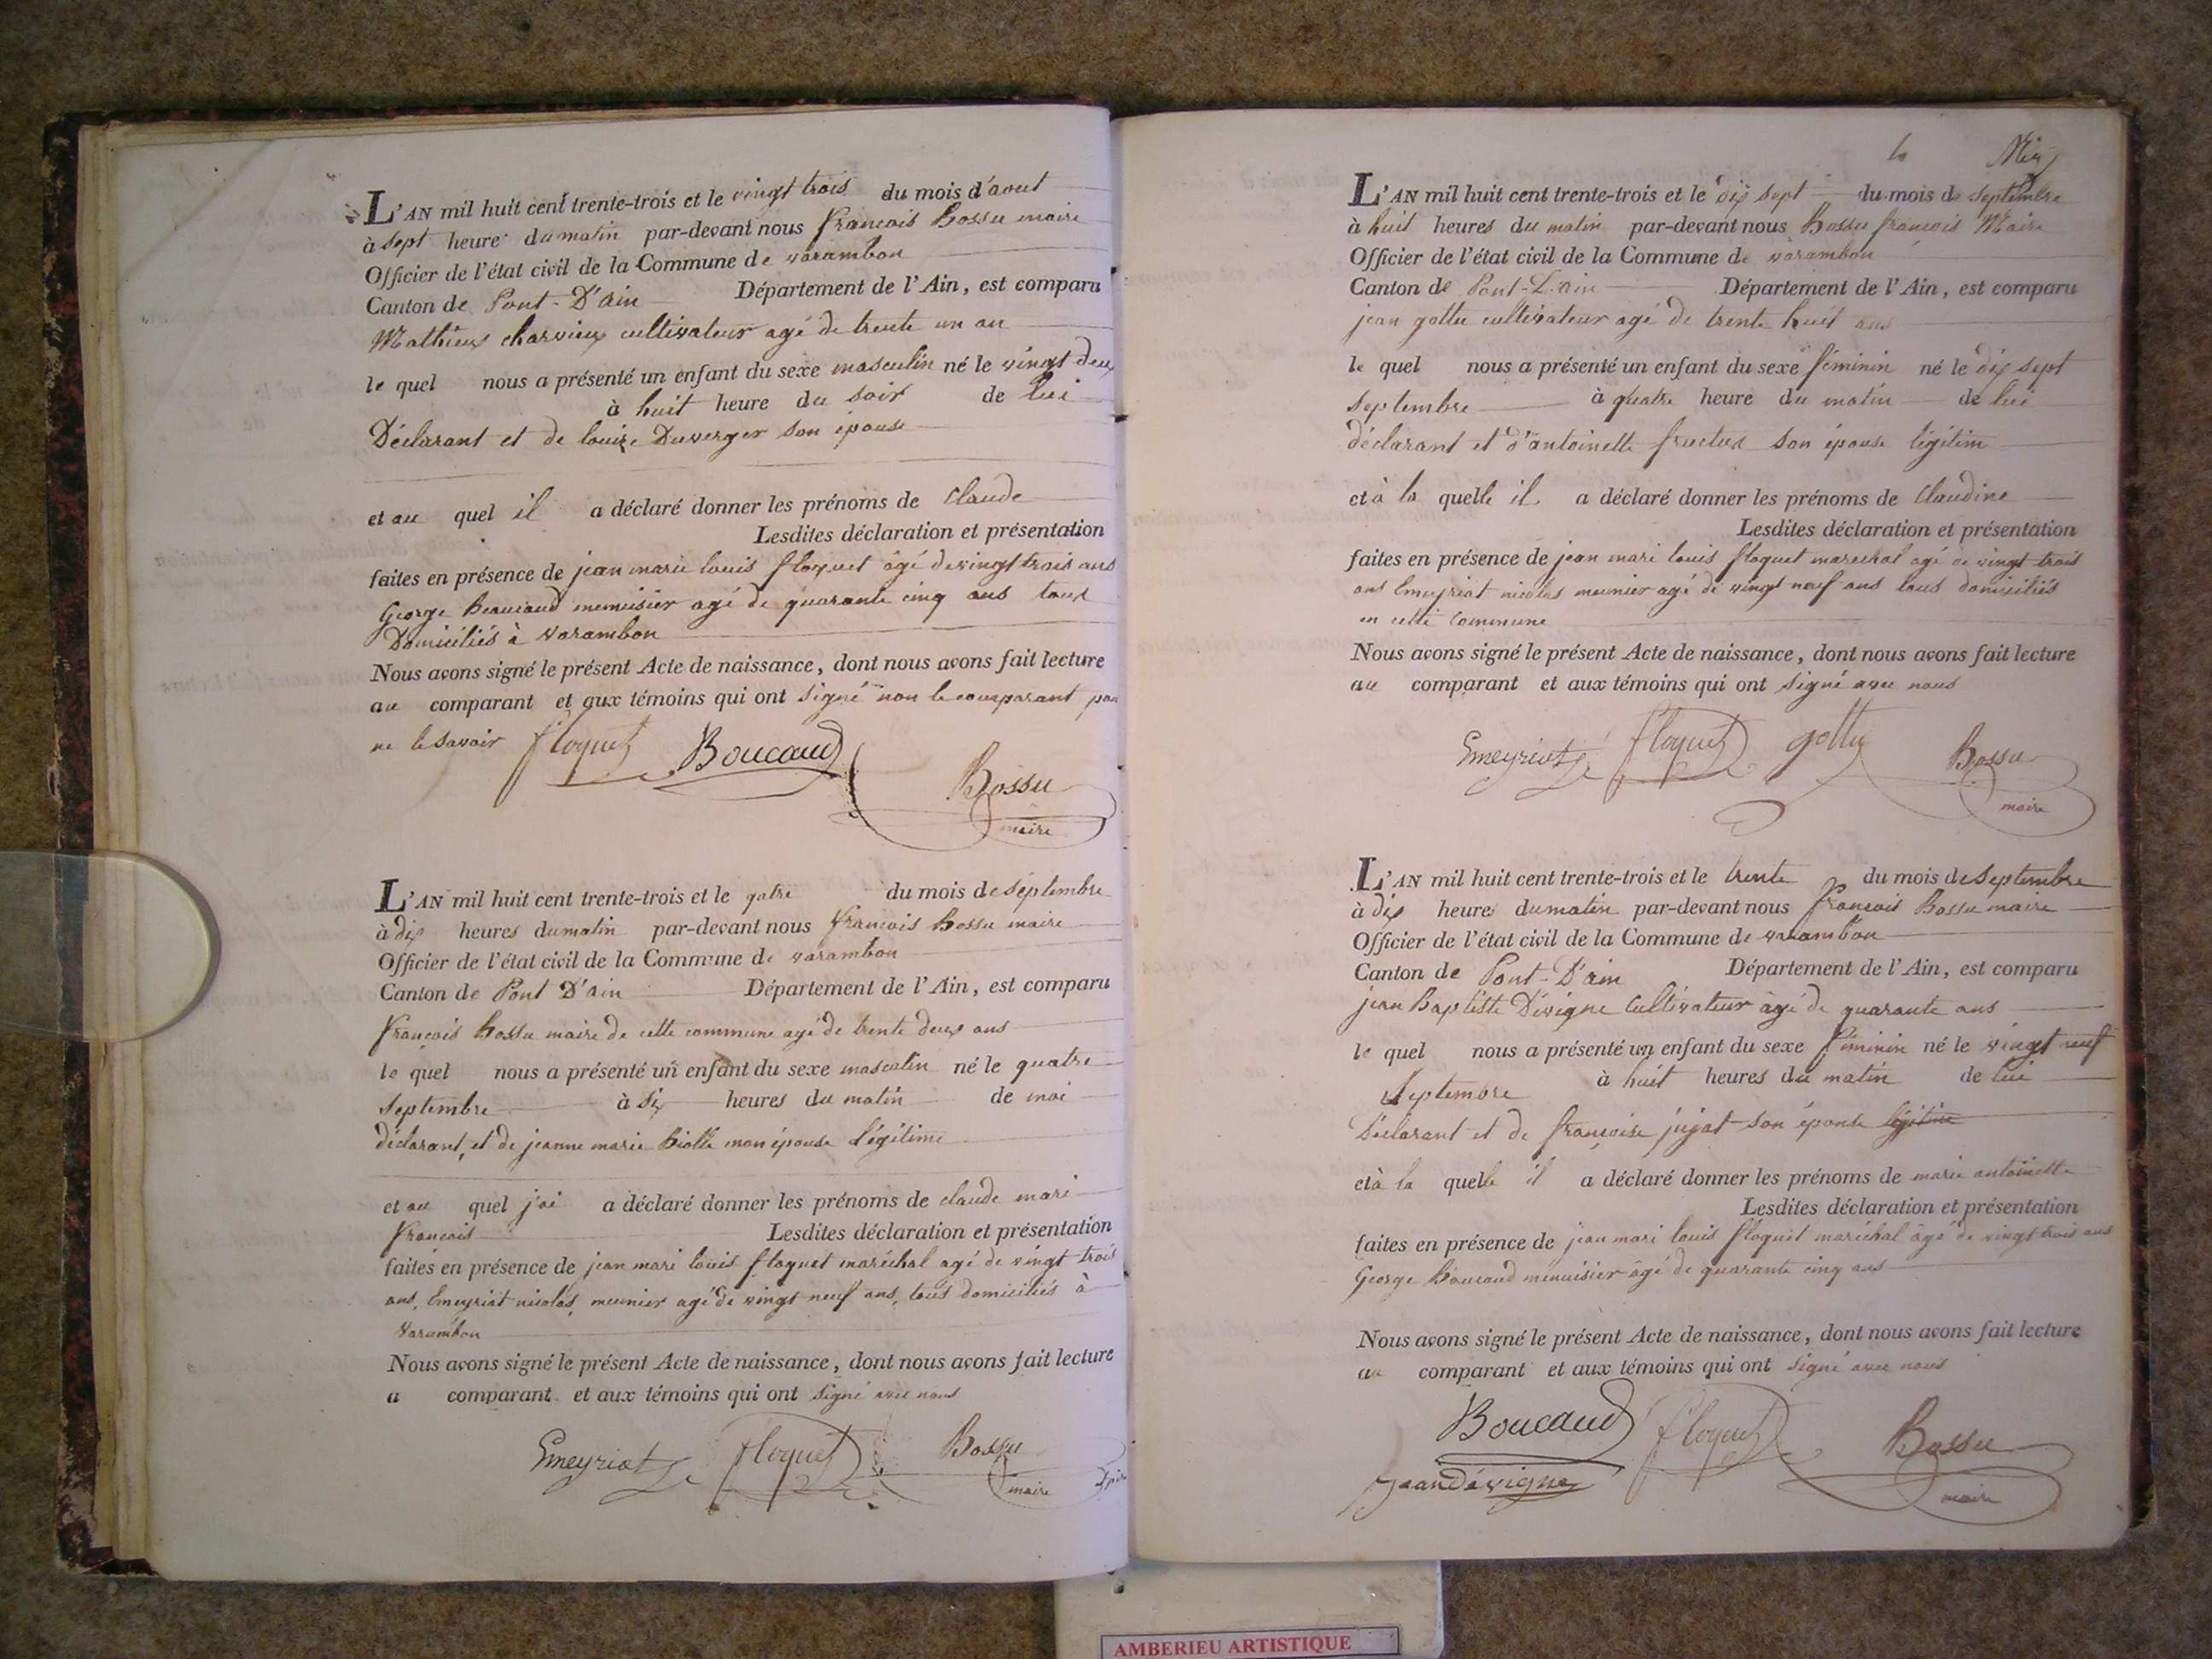 L'AN mil huit cent trente-trois et le vingt trois du mois d'aout
à sept heure du matin par-devant nous francois Bossu maire
Officier de l'état civil de la Commune de varambon
Canton de Pont-D'ain Département de l'Ain, est comparu
Mathieux charvieux cultivateur agé de trente un an
le quel nous a présenté un enfant du sexe masculin né le vingt deux
à huit heure du soir de lui
Déclarant et de louise Duverger son épouse
et au quel il a déclaré donner les prénoms de Claude
Lesdites déclaration et présentation
faites en présence de jean marie louis floquet âgé de vingt trois ans
George Beaucaud menuisier agé de quarante cinq ans tous
Domiciliés à varambon
Nous avons signé le présent Acte de naissance, dont nous avons fait lecture
au comparant et aux témoins qui ont signé non le comparant pour
ne le savoir floquet Boucaud
Bossu
maire
L'AN mil huit cent trente-trois et le qatre du mois de septembre
à dix heures du matin par-devant nous francois Bossu maire
Officier de l'état civil de la Commune de varambon
Canton de Pont D'ain Département de l'Ain, est comparu
francois Bossu maire de cette commune agé de trente deux ans
le quel nous a présenté un enfant du sexe masculin né le quatre
septembre à six heures du matin de moi
déclarant, et de jeanne marie Biolle mon épouse légitime
et au quel j'ai a déclaré donner les prénoms de claude mari
francois Lesdites déclaration et présentation
faites en présence de jean mari louis floquet maréchal agé de vingt trois
ans, Emeyriat nicolas, meunier agé de vingt neuf ans, tous domiciliés à
varambon
Nous avons signé le présent Acte de naissance, dont nous avons fait lecture
a comparant et aux témoins qui ont signé avec nous
Emeyriat floquet Bossu
maire
L'AN mil huit cent trente-trois et le dix sept du mois de septembre
à huit heures du matin par-devant nous Bossu francois Maire
Officier de l'état civil de la Commune de varambon
Canton de Pont-D'ain Département de l'Ain, est comparu
jean gottu cultivateur agé de trente huit ans
le quel nous a présenté un enfant du sexe féminin né le dix sept
septembre à quatre heure du matin de lui
déclarant et d'antoinette fructus son épouse légitim
et à la quelle il a déclaré donner les prénoms de Claudine
Lesdites déclaration et présentation
faites en présence de jean mari louis floquet marechal agé de vingt trois
ans Emeyriat nicolas meunier agé de vingt neuf ans tous domiciliés
en cette commune
Nous avons signé le présent Acte de naissance, dont nous avons fait lecture
au comparant et aux témoins qui ont signé avec nous
Emeyriat floquet gottu Bossu
maire
L'AN mil huit cent trente-trois et le trente du mois de septembre
à dix heures du matin par-devant nous francois Bossu maire
Officier de l'état civil de la Commune de varambon
Canton de Pont-D'ain Département de l'Ain, est comparu
jean Baptiste Dévigne Cultivateur âgé de quarante ans
le quel nous a présenté un enfant du sexe féminin né le vingt neuf
septembre à huit heures du matin de lui
Déclarant et de françoise jujat son épouse légitime
et à la quelle il a déclaré donner les prénoms de marie antoinette
Lesdites déclaration et présentation
faites en présence de jean mari louis floquet maréchal âgé de vingt trois ans
George Boucaud menuisier âgé de quarante cinq ans
Nous avons signé le présent Acte de naissance, dont nous avons fait lecture
au comparant et aux témoins qui ont signé avec nous
Boucaud floquet Bossu
jean Dévigne maire
AMBERIEU ARTISTIQUE